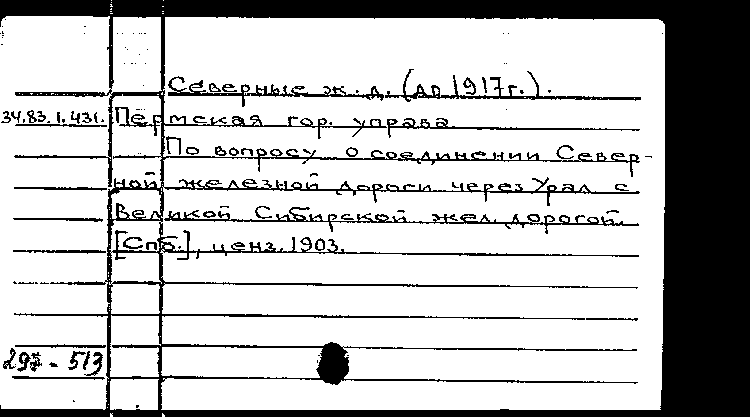 Северные ж. д. (до 1917г.).
34.83.1.431. Пермская гор. управа.
По вопросу о соединении Север-
ной железной дороги через Урал с
Великой Сибирской жел. дорогой.
[Спб.], ценз. 1903.
297 - 513